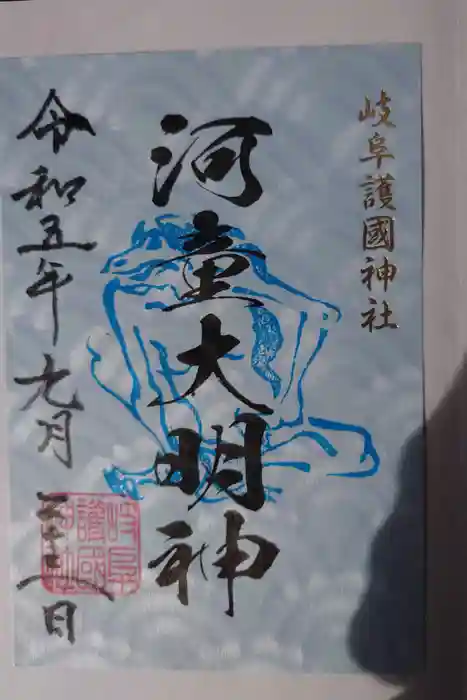 岐阜護國神社
河童大明神
令和五年九月二十二日
岐阜護國神社